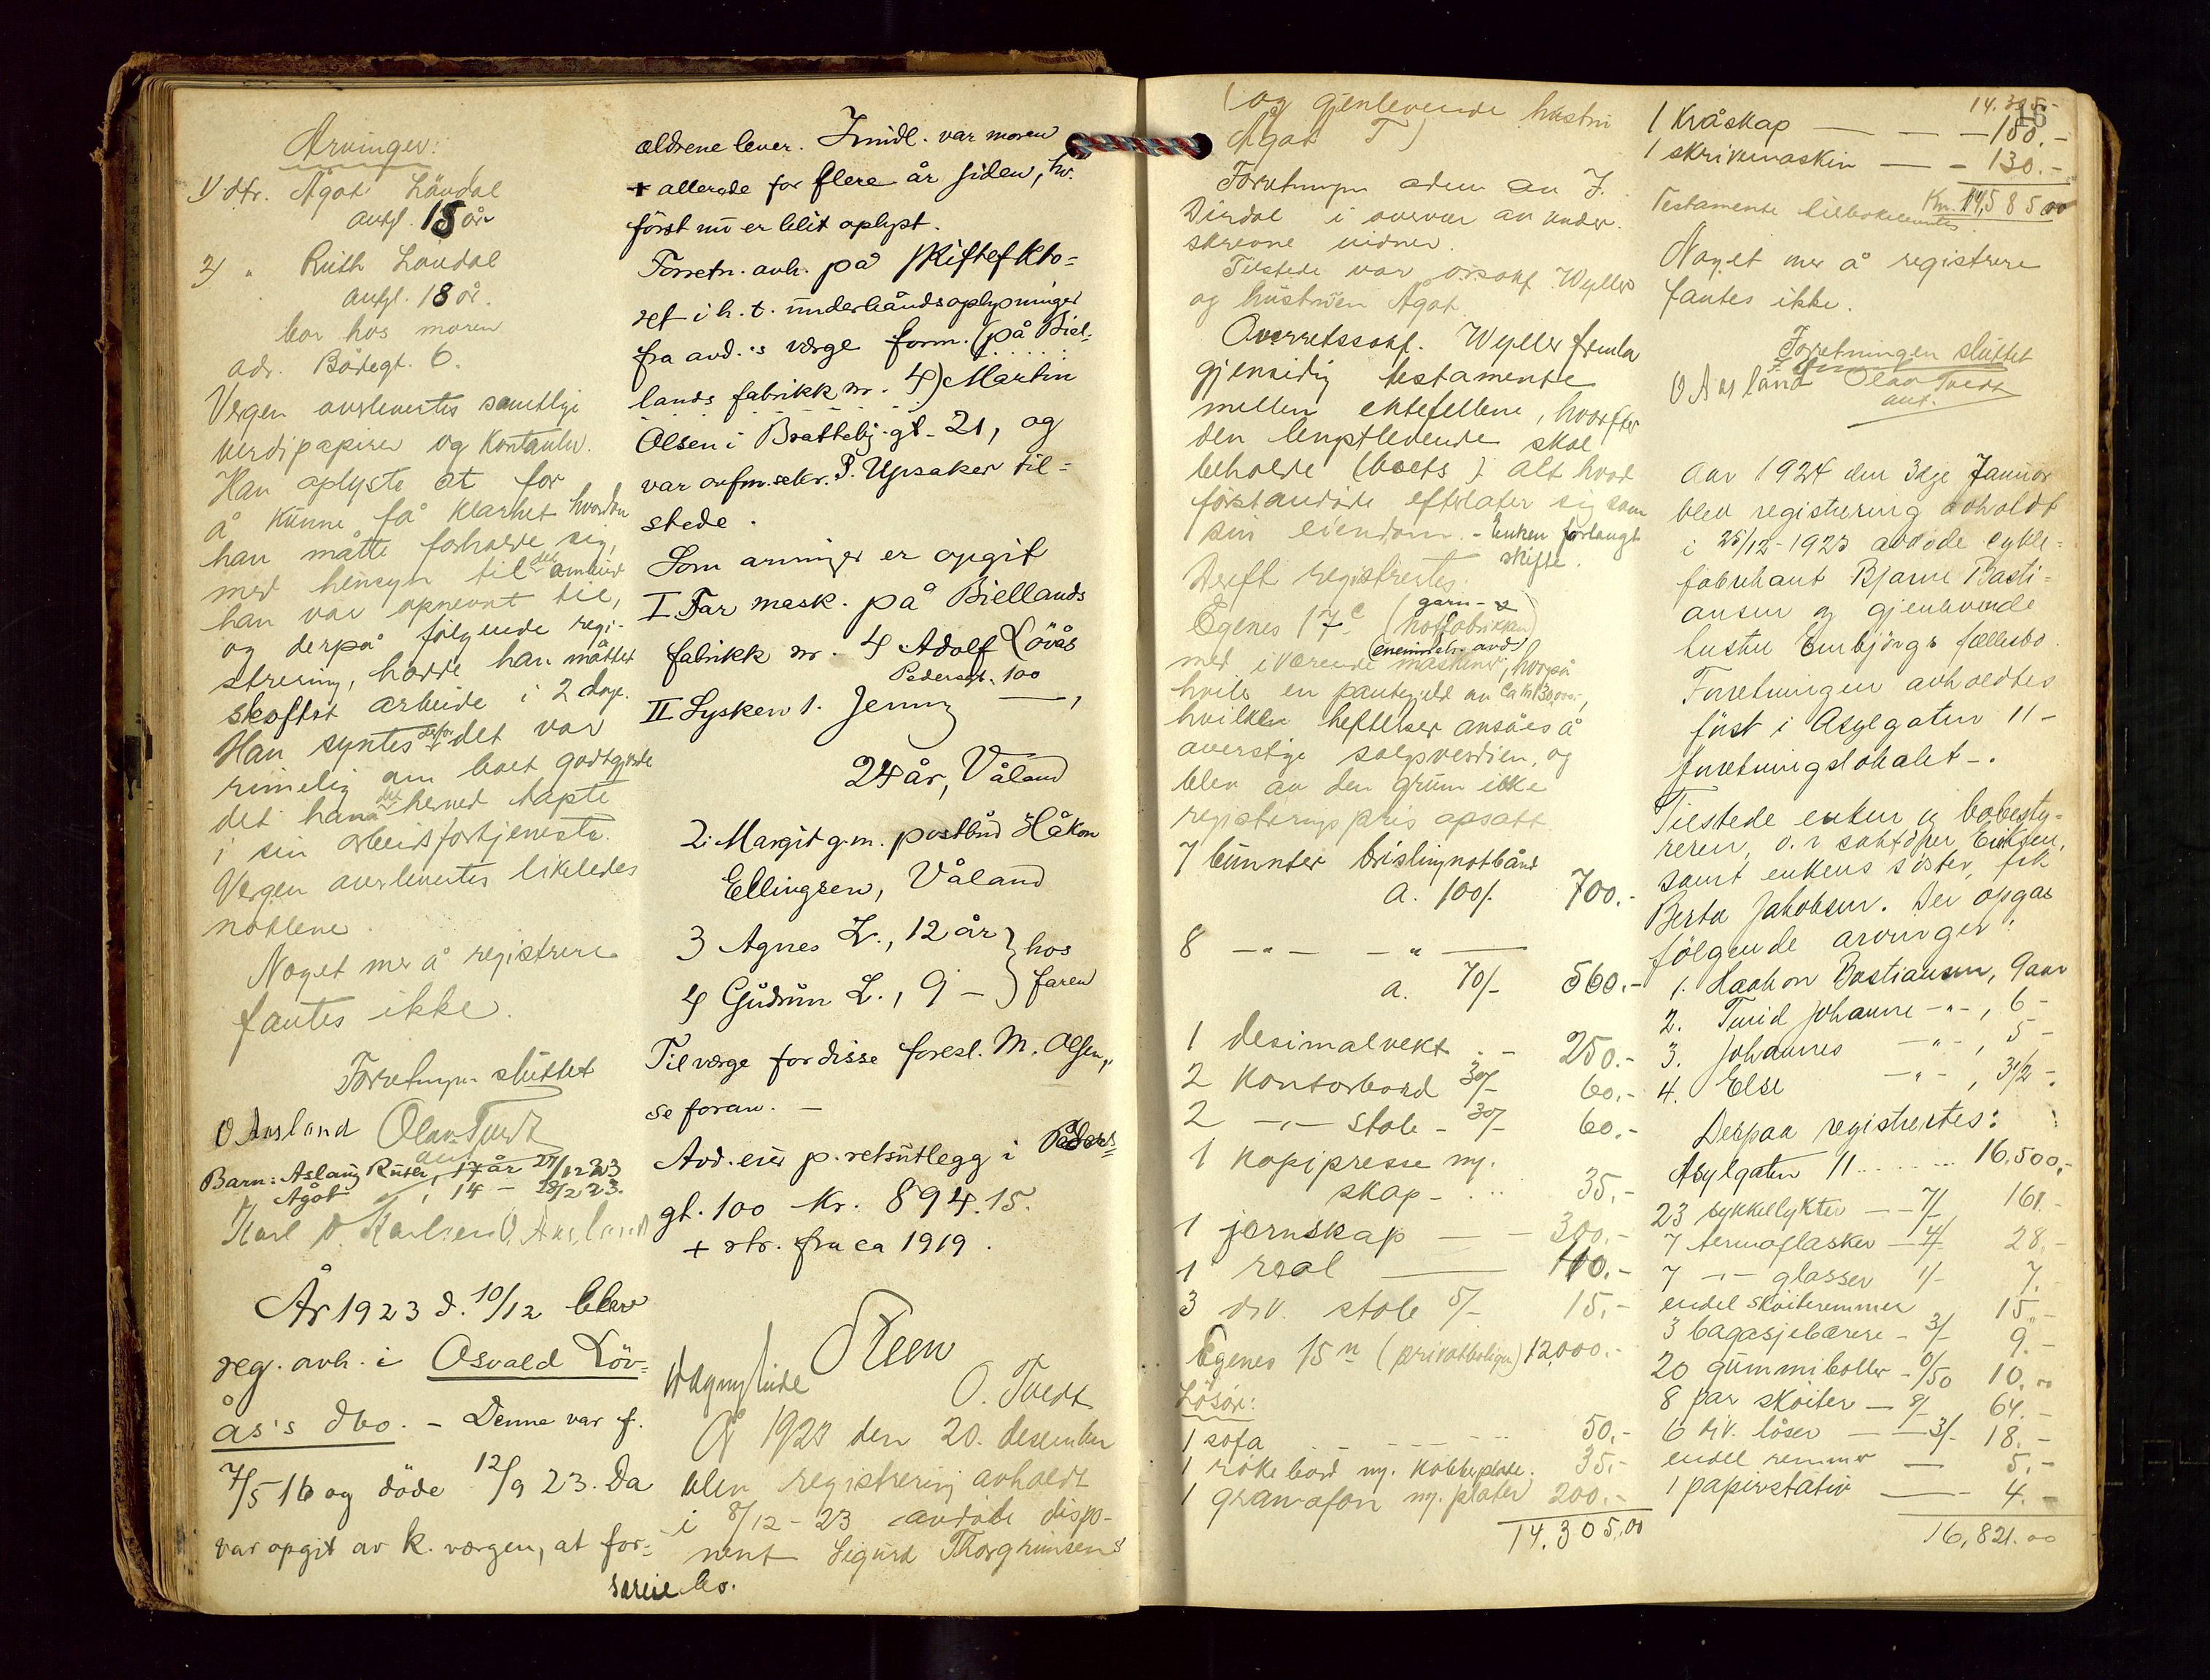 Arvinger:
1) dtr. Ågot Löndal
antgl. 15 år
2) " Ruth Löndal
antgl. 18 år.
bor hos moren
adr. Bådegt. 6.
Vergen overlevertes samtlige
verdipapirer og kontanter.
Han oplyste at for
å kunne få klarhet hvordan
han måtte forholde sig,
med hensyn til det ombud
han var opnevnt til,
og derpå følgende regi-
strering, hadde han måttet
skoftet arbeide i 2 dage.
Han syntes derfor det var
rimelig om boet godtgjorde
det han herved tapte
i sin arbeidsfortjeneste.
Vergen overlevertes likeledes
nøklene.
Noget mer å registrere
fantes ikke.
Forretningen sluttet
O Ausland Olav Tvedt
aut.
Barn: Aslaug Ruth, 17 år 27/12 23
Ågot, 14 -
Karl O. Karlsen O. Ausland
År 1923 d. 10/12 blev
reg. avh. i Osvald Löv-
ås's dbo. - Denne var f.
7/5 16 og döde 12/9 23. Da
var opgit av k. vergen, at for-
ældrene lever. Imidl. var moren
+ allerede for flere år siden, hv.
först nu er blit oplyst.
Forretn. avh. på skiftefkto-
ret i h. t. underhåndsoplysninger
fra avd.'s verge form. (på Biel-
lands fabrikk nr. 4) Martin
Olsen i Brattebj. gt. 21, og
var ovfm.sekr. P. Upsaker til-
stede.
Som arvinger er opgit
I Far mask. på Biellands
fabrikk nr. 4 Adolf Lövås
Pedersgt. 100
II Sysken 1. Jenny —,
24 år, Våland
2. Margit g.m. postbud Håkon
Ellingsen, Våland
3 Agnes L., 12 år } hos
4 Gudrun L., 9 - } faren
Til verge for disse foresl. M. Olsen,
se foran. -
Avd. eier p. retsutlegg i Peders-
gt. 100 Kr. 894.15.
+ rtr. fra ca 1919.
Steen
O. Tvedt
År 1923 den 20. desember
blev registrering avholdt
i 8/12-23 avdöde dispo-
nent Sigurd Thorgrimsens
særeie bo.
(og gjenlevende hustru
Ågot T)
Forretningen adm av J.
Dirdal i overvær av under-
skrevne vidner.
Tilstede var orsakf. Wyller
og hustruen Ågot.
Overretssakf. Wyller fremla
gjensidig testamente
mellem ektefellene, hvorefter
den lengstlevende skal
beholde (boets) alt hvad
förstavdöde efterlater sig som
sin eiendom. - Enken forlangt
skifte.
Dereft. registrertes:
Egenes 17c (garn- &
notfabrikken)
med iværende maskiner, hvorpå
hviler en pantegjeld av ca kr 130,000.-,
hvilke heftelser ansåes å
overstige salgsverdien, og
blev av den grunn ikke
registeringspris opsatt
7 bunnter brislingnotbånd
a. 100/- 700.-
8 —"— —"—
a. 70/- 560.-
1 desimalvekt - 250.-
2 kontorbord 30/- 60.-
2 —"— stole - 30/- 60.-
1 kopipresse m.
skap - 35.-
1 jernskap — - 300.-
1 reol — 100.-
3 div. stole 5/- 15.-
Egenes 15n (privatboligen) 12,000.-
Lösöre:
1 sofa 50.-
1 rökebord m. kobberplate. 35.-
1 gramofon m. plater 200.-
14.305,00
14.305.-
1 kråskap — 150.-
1 skrivemaskin — 130.-
Kr. 14,585 00
Testamente tilbakelevertes
Noget mer å registrere
fantes ikke.
Forretningen sluttet
O Ausland Olav Tvedt
aut.
Aar 1924 den 3dje Januar
blev registrering avholdt
i 25/12-1923 avdöde cykle-
fabrikant Bjarne Basti-
ansen og gjenlevende
hustru Enbjörgs fællesbo.
Forretningen avholdtes
först i Asylgaten 11 -
forretningslokalet -.
Tilstede enken og bobesty-
reren, o.r sakförer Eriksen,
samt enkens söster, frk
Berta Jakobsen. De opgav
fölgende arvinger:
1. Haakon Bastiansen, 9 aar
2. Turid Johanne —"—, 6 -
3. Johannes —"—, 5 -
4. Else —"—, 3 1/2 -
Derpaa registrertes:
Asylgaten 11 ........ 16.500,-
23 sykkellykter — 7/- 161.-
7 termosflasker — 4/- 28.-
7 —"— glasser 1/- 7.-
endel sköiteremmer 15.-
3 bagasjebærere - 3/- 9.-
20 gummiboller - 0/50 10.00
8 par sköiter — 8/- 64.-
6 div. låser — 3/- 18.-
endel remmer — 5.-
1 papirstativ — 4.-
16,821.00